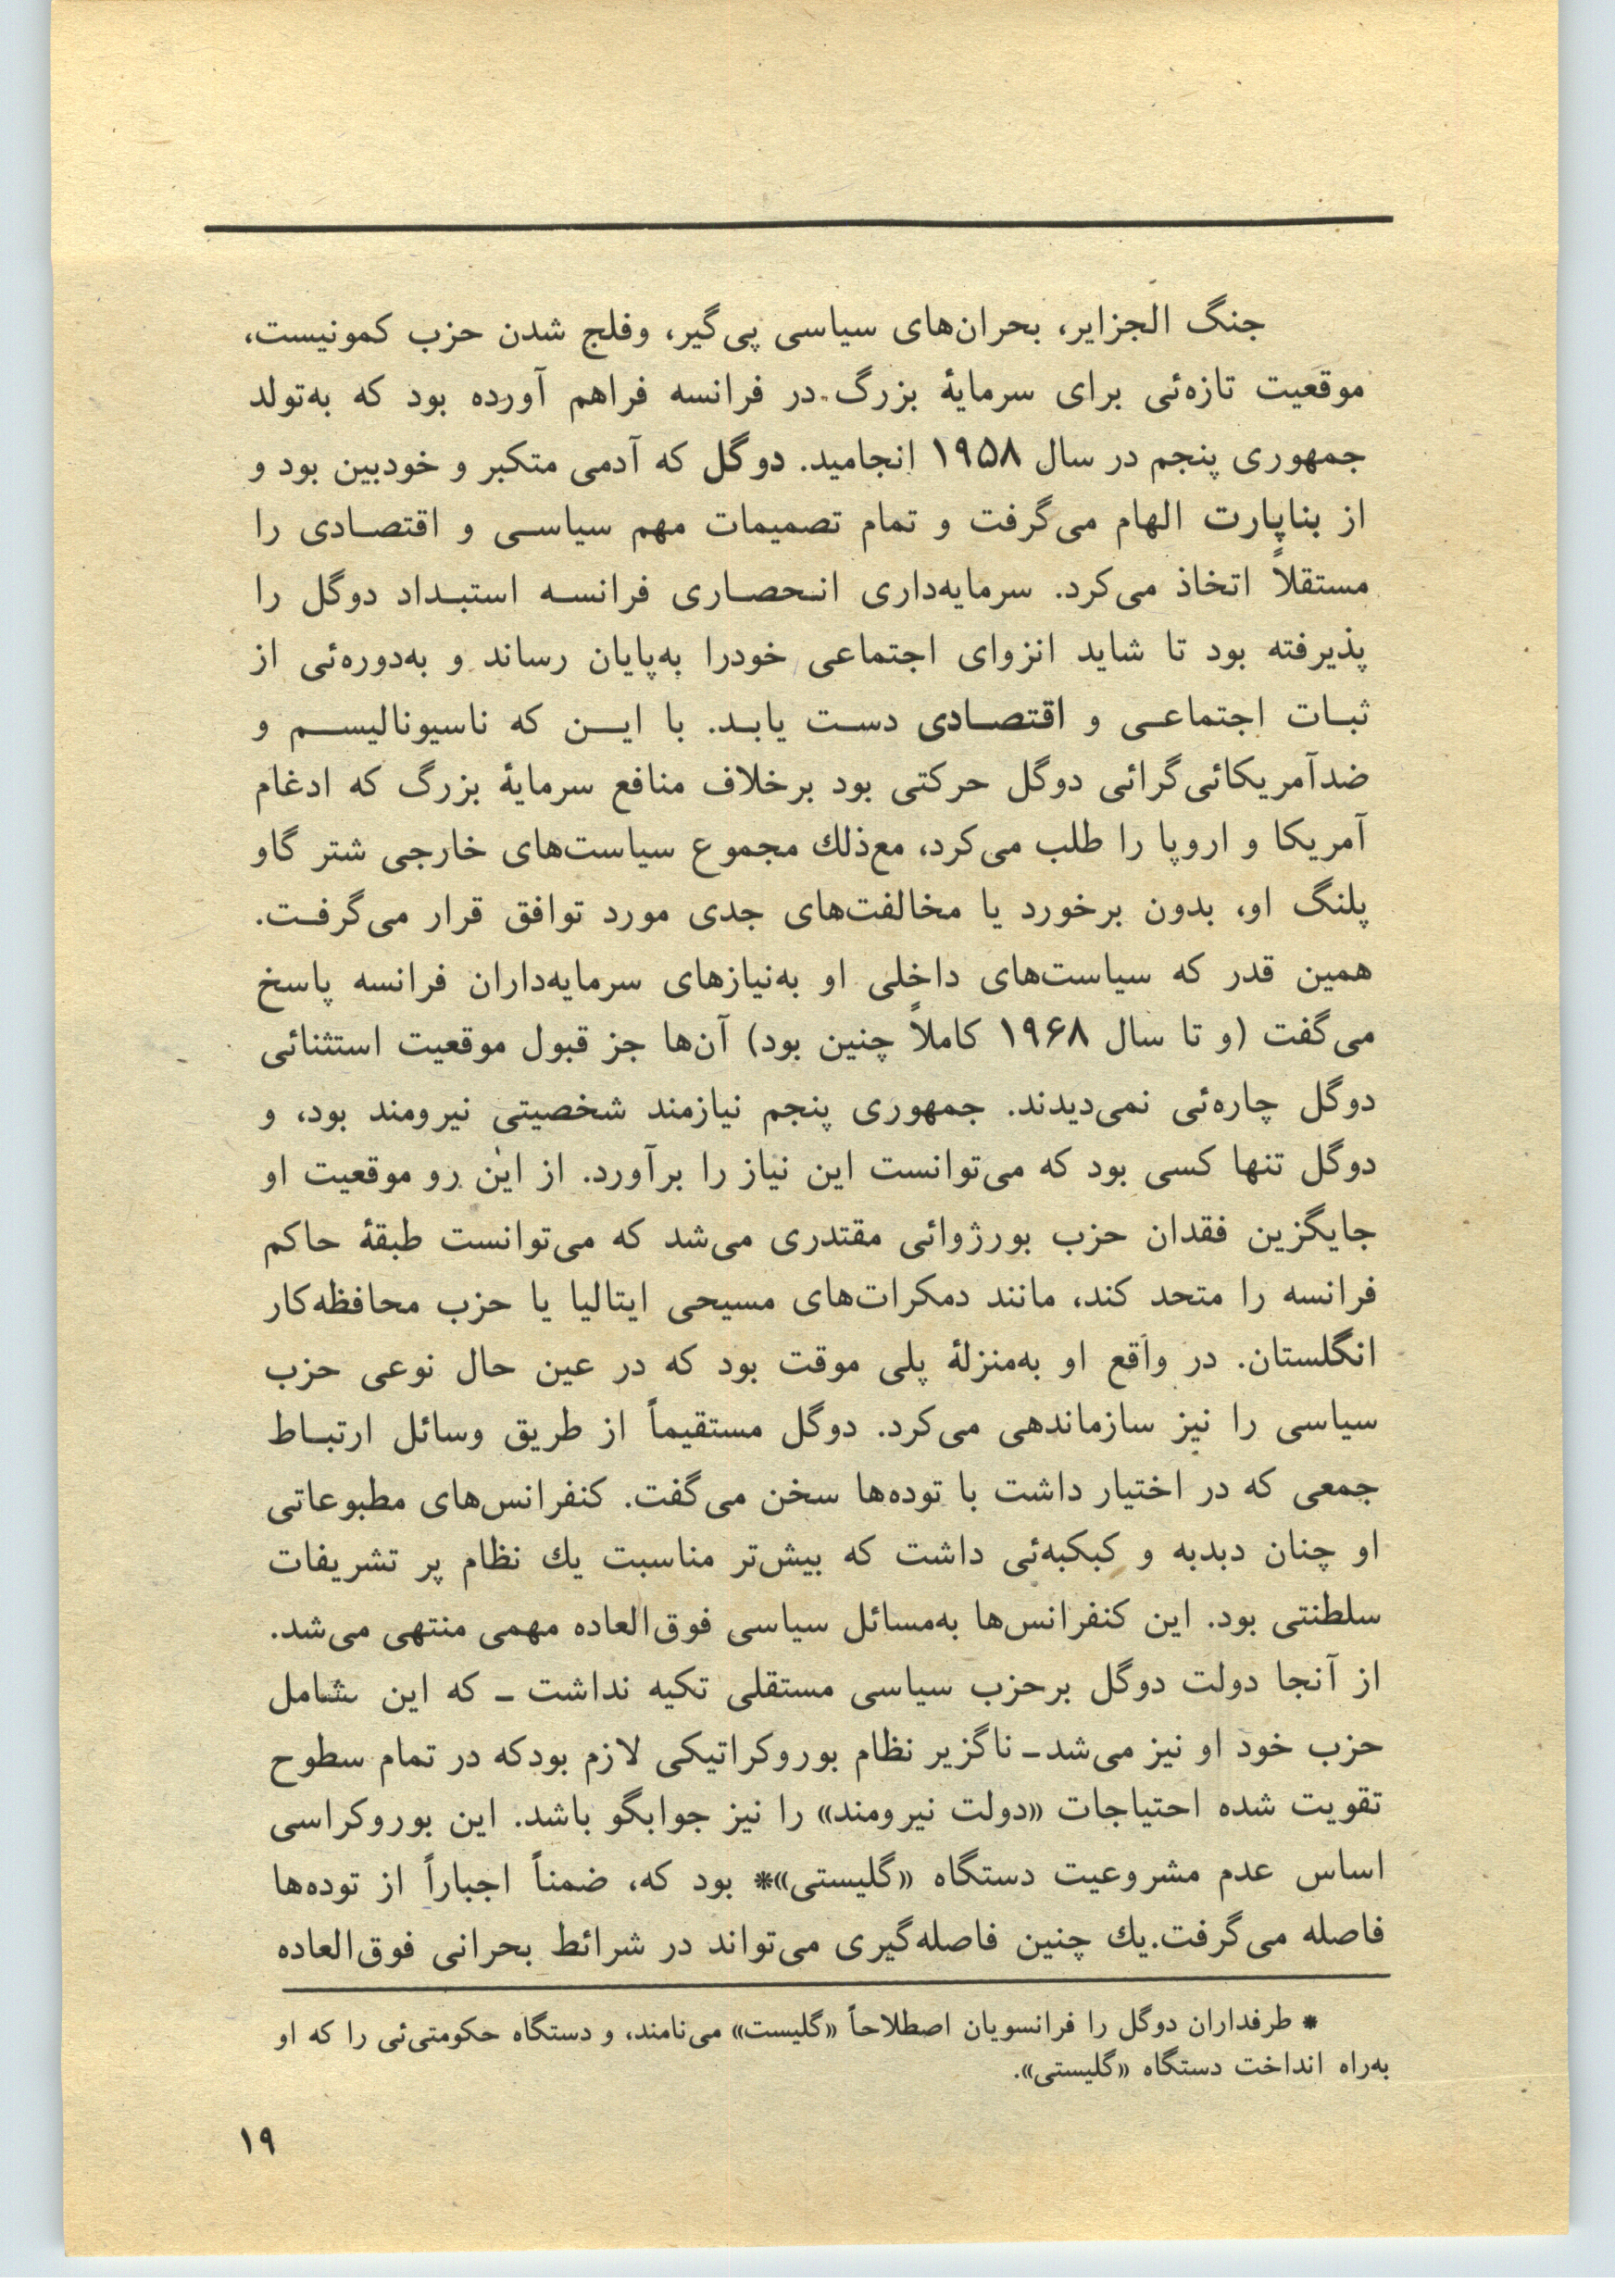 جنگ الجزایر، بحران‌های سیاسی پی‌گیر، وفلج شدن حزب کمونیست،
موقعیت تازه‌ئی برای سرمایۀ بزرگ در فرانسه فراهم آورده بود که به‌تولد
جمهوری پنجم در سال ۱۹۵۸ انجامید. دوگل که آدمی متکبر و خودبین بود و
از بناپارت الهام می‌گرفت و تمام تصمیمات مهم سیاسی و اقتصادی را
مستقلاً اتخاذ می‌کرد. سرمایه‌داری انحصاری فرانسه استبداد دوگل را
پذیرفته بود تا شاید انزوای اجتماعی خودرا به‌پایان رساند و به‌دوره‌ئی از
ثبات اجتماعی و اقتصادی دست یابد. با این که ناسیونالیسم و
ضدآمریکائی‌گرائی دوگل حرکتی بود برخلاف منافع سرمایۀ بزرگ که ادغام
آمریکا و اروپا را طلب می‌کرد، مع‌ذلك مجموع سیاست‌های خارجی شتر گاو
پلنگ او، بدون برخورد یا مخالفت‌های جدی مورد توافق قرار می‌گرفت.
همین قدر که سیاست‌های داخلی او به‌نیازهای سرمایه‌داران فرانسه پاسخ
می‌گفت (و تا سال ۱۹۶۸ کاملاً چنین بود) آن‌ها جز قبول موقعیت استثنائی
دوگل چاره‌ئی نمی‌دیدند. جمهوری پنجم نیازمند شخصیتی نیرومند بود، و
دوگل تنها کسی بود که می‌توانست این نیاز را برآورد. از این رو موقعیت او
جایگزین فقدان حزب بورژوائی مقتدری می‌شد که می‌توانست طبقۀ حاکم
فرانسه را متحد کند، مانند دمکرات‌های مسیحی ایتالیا یا حزب محافظه‌کار
انگلستان. در واقع او به‌منزلۀ پلی موقت بود که در عین حال نوعی حزب
سیاسی را نیز سازماندهی می‌کرد. دوگل مستقیماً از طریق وسائل ارتباط
جمعی که در اختیار داشت با توده‌ها سخن می‌گفت. کنفرانس‌های مطبوعاتی
او چنان دبدبه و کبکبه‌ئی داشت که بیش‌تر مناسبت یك نظام پر تشریفات
سلطنتی بود. این کنفرانس‌ها به‌مسائل سیاسی فوق‌العاده مهمی منتهی می‌شد.
از آنجا دولت دوگل برحزب سیاسی مستقلی تکیه نداشت ـ که این شامل
حزب خود او نیز می‌شد ـ ناگزیر نظام بوروکراتیکی لازم بودکه در تمام سطوح
تقویت شده احتیاجات «دولت نیرومند» را نیز جوابگو باشد. این بوروکراسی
اساس عدم مشروعیت دستگاه «گلیستی»* بود که، ضمناً اجباراً از توده‌ها
فاصله می‌گرفت.یك چنین فاصله‌گیری می‌تواند در شرائط بحرانی فوق‌العاده
* طرفداران دوگل را فرانسویان اصطلاحاً «گلیست» می‌نامند، و دستگاه حکومتی‌ئی را که او
به‌راه انداخت دستگاه «گلیستی».
۱۹